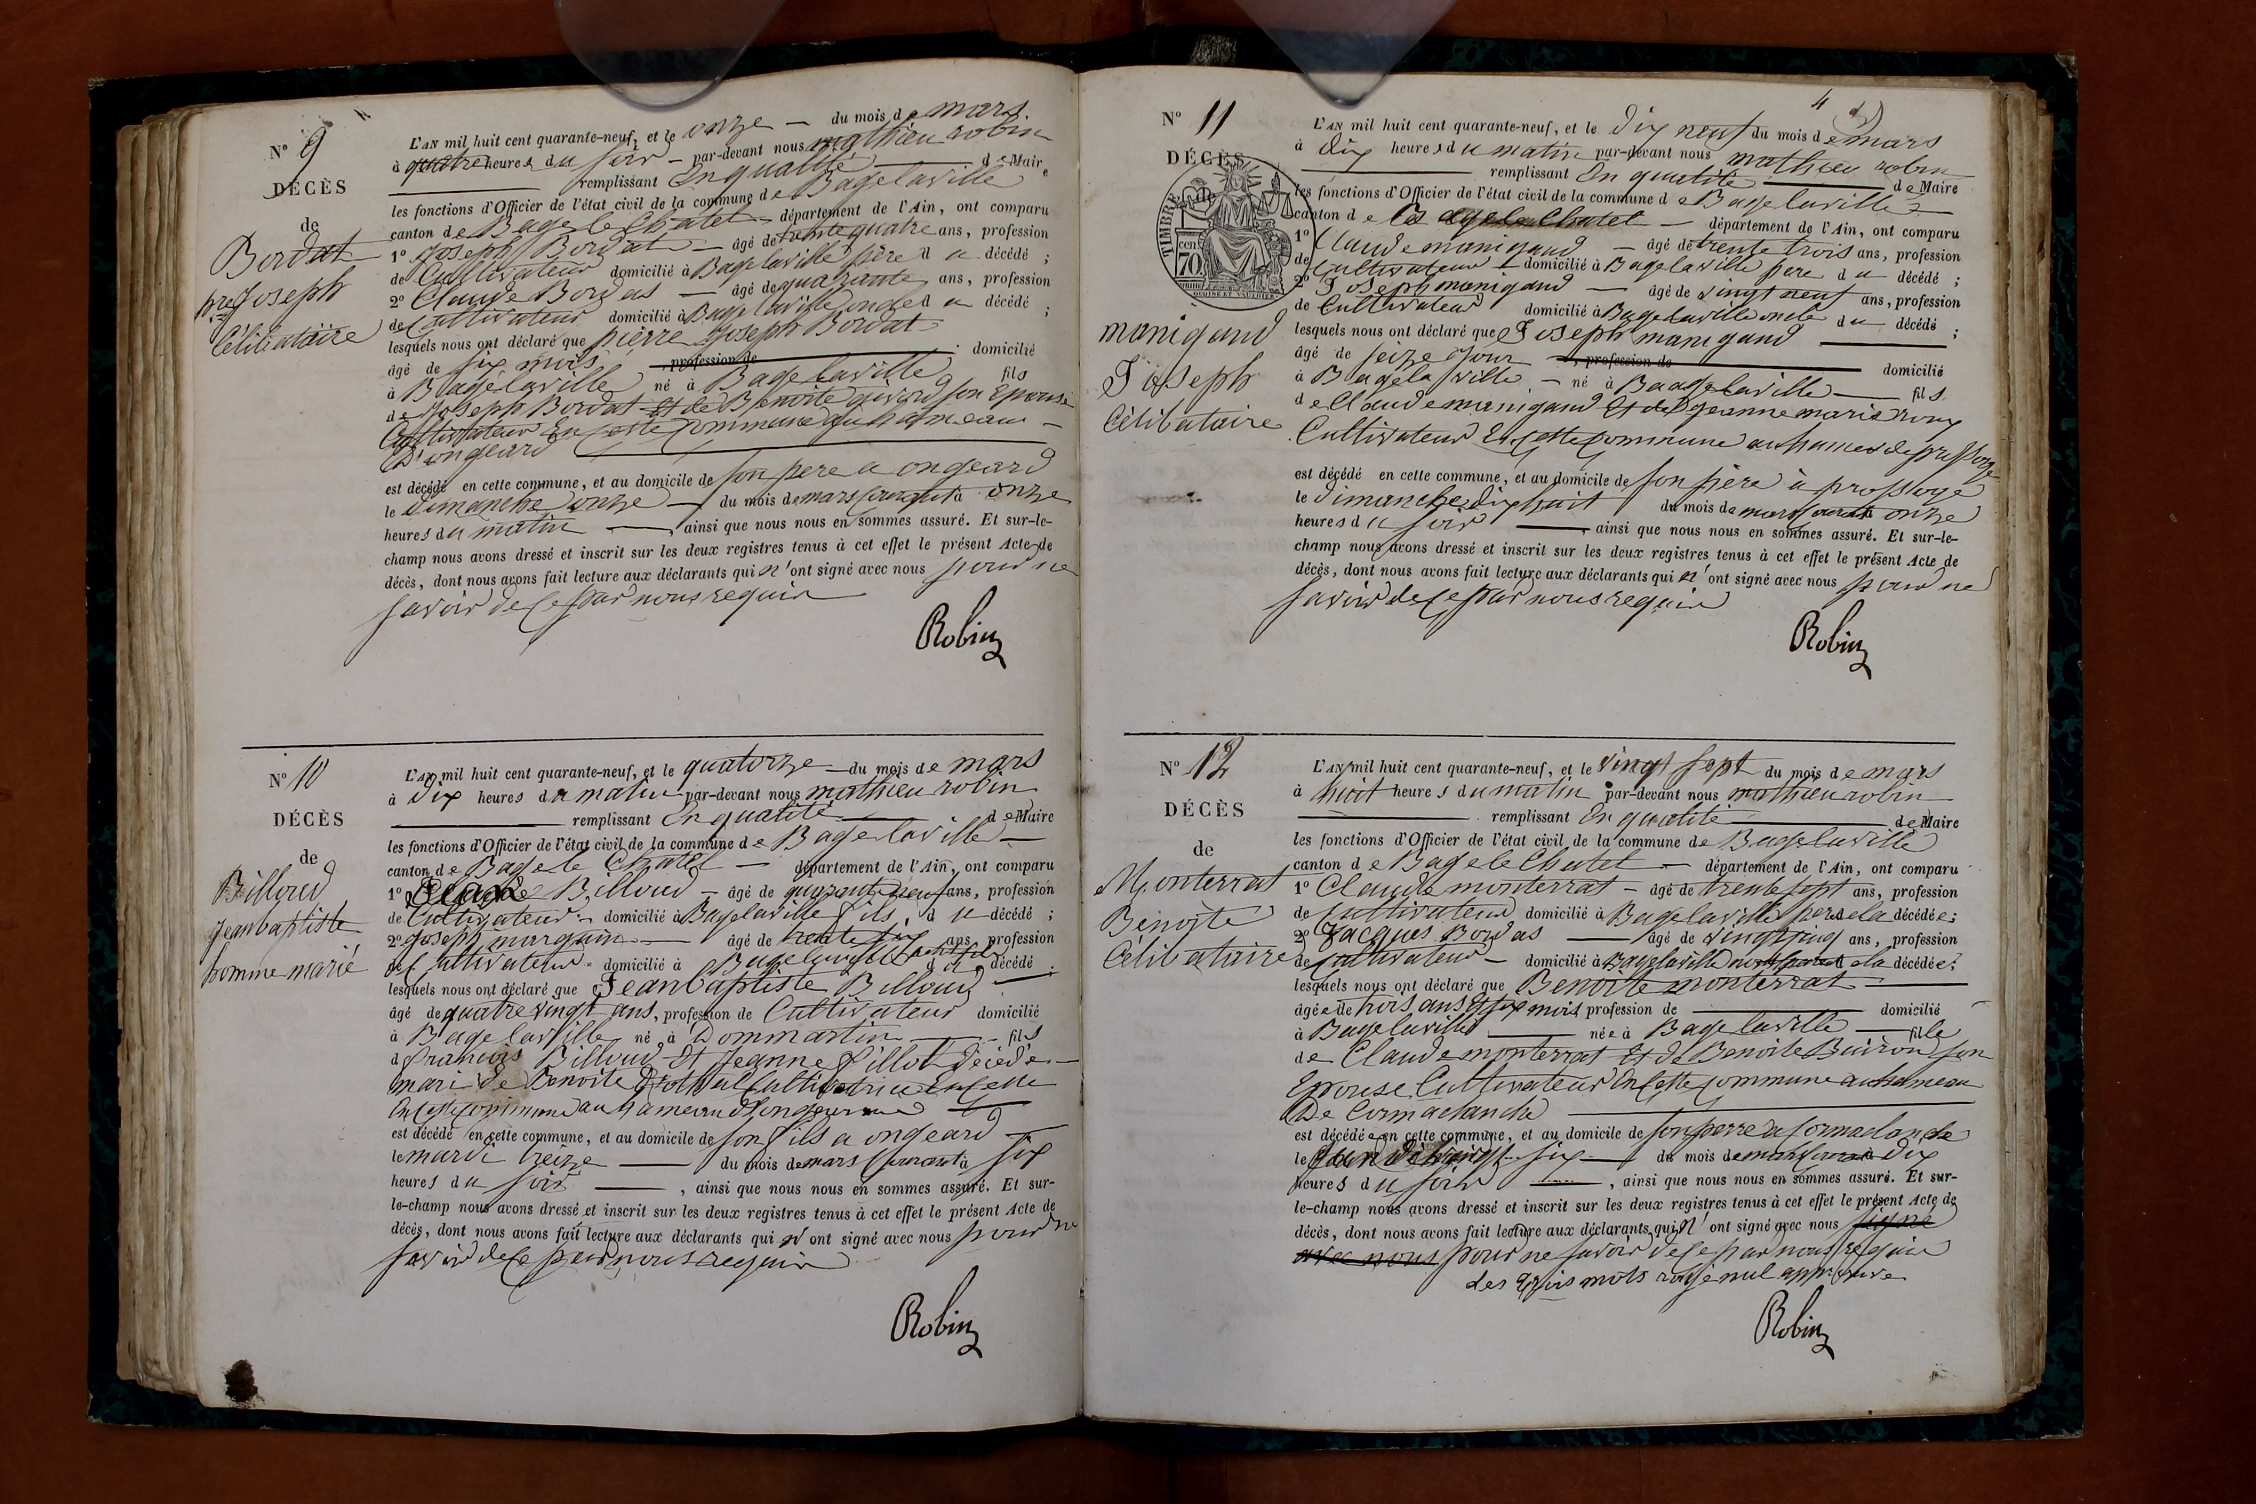 N° 9
DÉCÈS
de
Bordat
pre Joseph
Célibataire
L'AN mil huit cent quarante-neuf, et le onze — du mois de mars
à quatre heures du soir — par-devant nous mathieu robin
remplissant En qualité de Maire
les fonctions d'Officier de l'état civil de la commune de Bagelaville
canton de Bage le Chatel — département de l'Ain, ont comparu
1° Joseph Bordat — âgé de trente quatre ans, profession
de Cultivateur domicilié à Bagelaville père du décédé ;
2° Claude Bordas — âgé de quarante ans, profession
de Cultivateur domicilié à Bagelaville oncle du décédé ;
lesquels nous ont déclaré que pierre Joseph Bordat
âgé de six mois profession de domicilié
à Bagelaville né à Bagelaville fils
de Joseph Bordat Et de Benoite givord son Epouse
Cultivateur En Cette Commune au hameau —
D'ongeard
est décédé en cette commune, et au domicile de son pere a ongeard
le dimanche onze — du mois de mars Courant à onze
heures du matin — ainsi que nous nous en sommes assuré. Et sur-le-
champ nous avons dressé et inscrit sur les deux registres tenus à cet effet le présent Acte de
décès, dont nous avons fait lecture aux déclarants qui n'ont signé avec nous pour ne
savoir de Ce par nous requis
Robin
N° 10
DÉCÈS
de
Billoud
jeanbaptiste
homme marié
L'AN mil huit cent quarante-neuf, et le quatorze — du mois de mars
à dix heures du matin par-devant nous mathieu robin
remplissant En qualité de Maire
les fonctions d'Officier de l'état civil de la commune de Bagelaville —
canton de Bage le Chatel — département de l'Ain, ont comparu
1° Billoud — âgé de quarante neuf ans, profession
de Cultivateur domicilié à Bagelaville fils du décédé ;
2° joseph marguin — âgé de trente six ans profession
de Cultivateur domicilié à Bagelaville du décédé
lesquels nous ont déclaré que Jeanbaptiste Billoud —
âgé de quatre vingt ans, profession de Cultivateur domicilié
à Bagelaville né à Dommartin — fils
d françois Billoud Et Jeanne fillot décédés —
mari de Benoite Cultivatrice En Cette
En Cette commune au hameau d'ongeard
est décédé en cette commune, et au domicile de son fils a ongeard —
le mardi treize — du mois de mars Courant à six
heures du soir — , ainsi que nous nous en sommes assuré. Et sur-
le-champ nous avons dressé et inscrit sur les deux registres tenus à cet effet le présent Acte de
décès, dont nous avons fait lecture aux déclarants qui n'ont signé avec nous pour ne
savoir de Ce par nous requis
Robin
4
N° 11
DÉCÈS
de
TIMBRE
70 cen
manigand
Joseph
Célibataire
L'AN mil huit cent quarante-neuf, et le dix neuf du mois de mars
à dix heures du matin par-devant nous mathieu robin
remplissant En qualité de Maire
les fonctions d'Officier de l'état civil de la commune de Bagelaville
canton de Bage le Chatel — département de l'Ain, ont comparu
1° Claude manigand — âgé de trente trois ans, profession
de Cultivateur — domicilié à Bagelaville pere du décédé ;
2° Joseph manigand — âgé de vingt neuf ans, profession
de Cultivateur domicilié à Bagelaville oncle du décédé ;
lesquels nous ont déclaré que Joseph manigand
âgé de seize jour profession de domicilié
à Bagelaville — né à Baagelaville — fils
de Claude manigand Et de jeanne marie roux
Cultivateur En Cette Commune au hameau de
est décédé en cette commune, et au domicile de son père à
le dimanche dix huit du mois de mars courant à onze
heures du soir — ainsi que nous nous en sommes assuré. Et sur-le-
champ nous avons dressé et inscrit sur les deux registres tenus à cet effet le présent Acte de
décès, dont nous avons fait lecture aux déclarants qui n'ont signé avec nous pour ne
savoir de Ce par nous requis
Robin
N° 12
DÉCÈS
de
Monterrat
Benoite
Célibataire
L'AN mil huit cent quarante-neuf, et le vingt sept du mois de mars
à huit heures du matin par-devant nous mathieu robin
remplissant En qualité de Maire
les fonctions d'Officier de l'état civil de la commune de Bagelaville
canton de Bage le Chatel — département de l'Ain, ont comparu
1° Claude monterrat — âgé de trente sept ans, profession
de Cultivateur domicilié à Bagelaville pere de la décédée ;
2° Jacques Bordas — âgé de vingt cinq ans, profession
de Cultivateur — domicilié à Bagelaville de la décédée ;
lesquels nous ont déclaré que Benoite monterrat
âgée de trois ans Et six mois profession de domicilié
à Bagelaville — née à Bagelaville — fille
de Claude monterrat Et de Benoite Buiron son
Epouse Cultivateur En Cette Commune au hameau
De Cormaclanche
est décédée en cette commune, et au domicile de son perre a Cormaclanche
le lundi vingt six — du mois de mars courant à dix
heures du soir — , ainsi que nous nous en sommes assuré. Et sur-
le-champ nous avons dressé et inscrit sur les deux registres tenus à cet effet le présent Acte de
décès, dont nous avons fait lecture aux déclarants qui n'ont signé avec nous signé
avec nous pour ne savoir de Ce par nous requis
des trois mots rayé nul approuvé
Robin